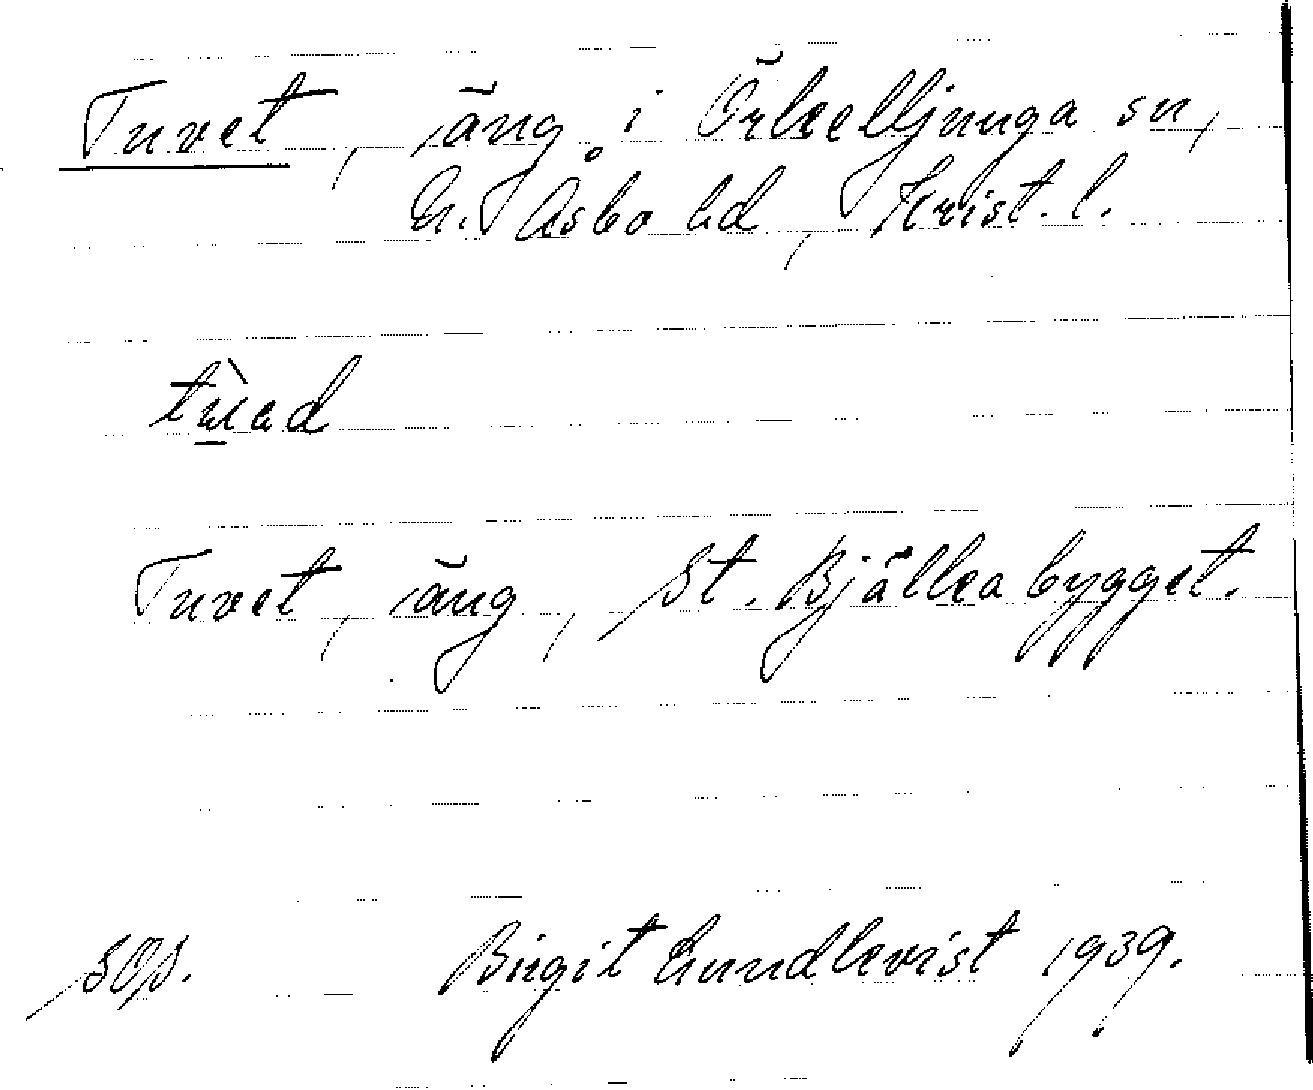 Tuvet, äng i Örkelljunga sn,
N. Åsbo hd, Krist. l.
Tuvet, äng, St. Bjällerabygget.
sops.
Birgit Lundkvist 1939.